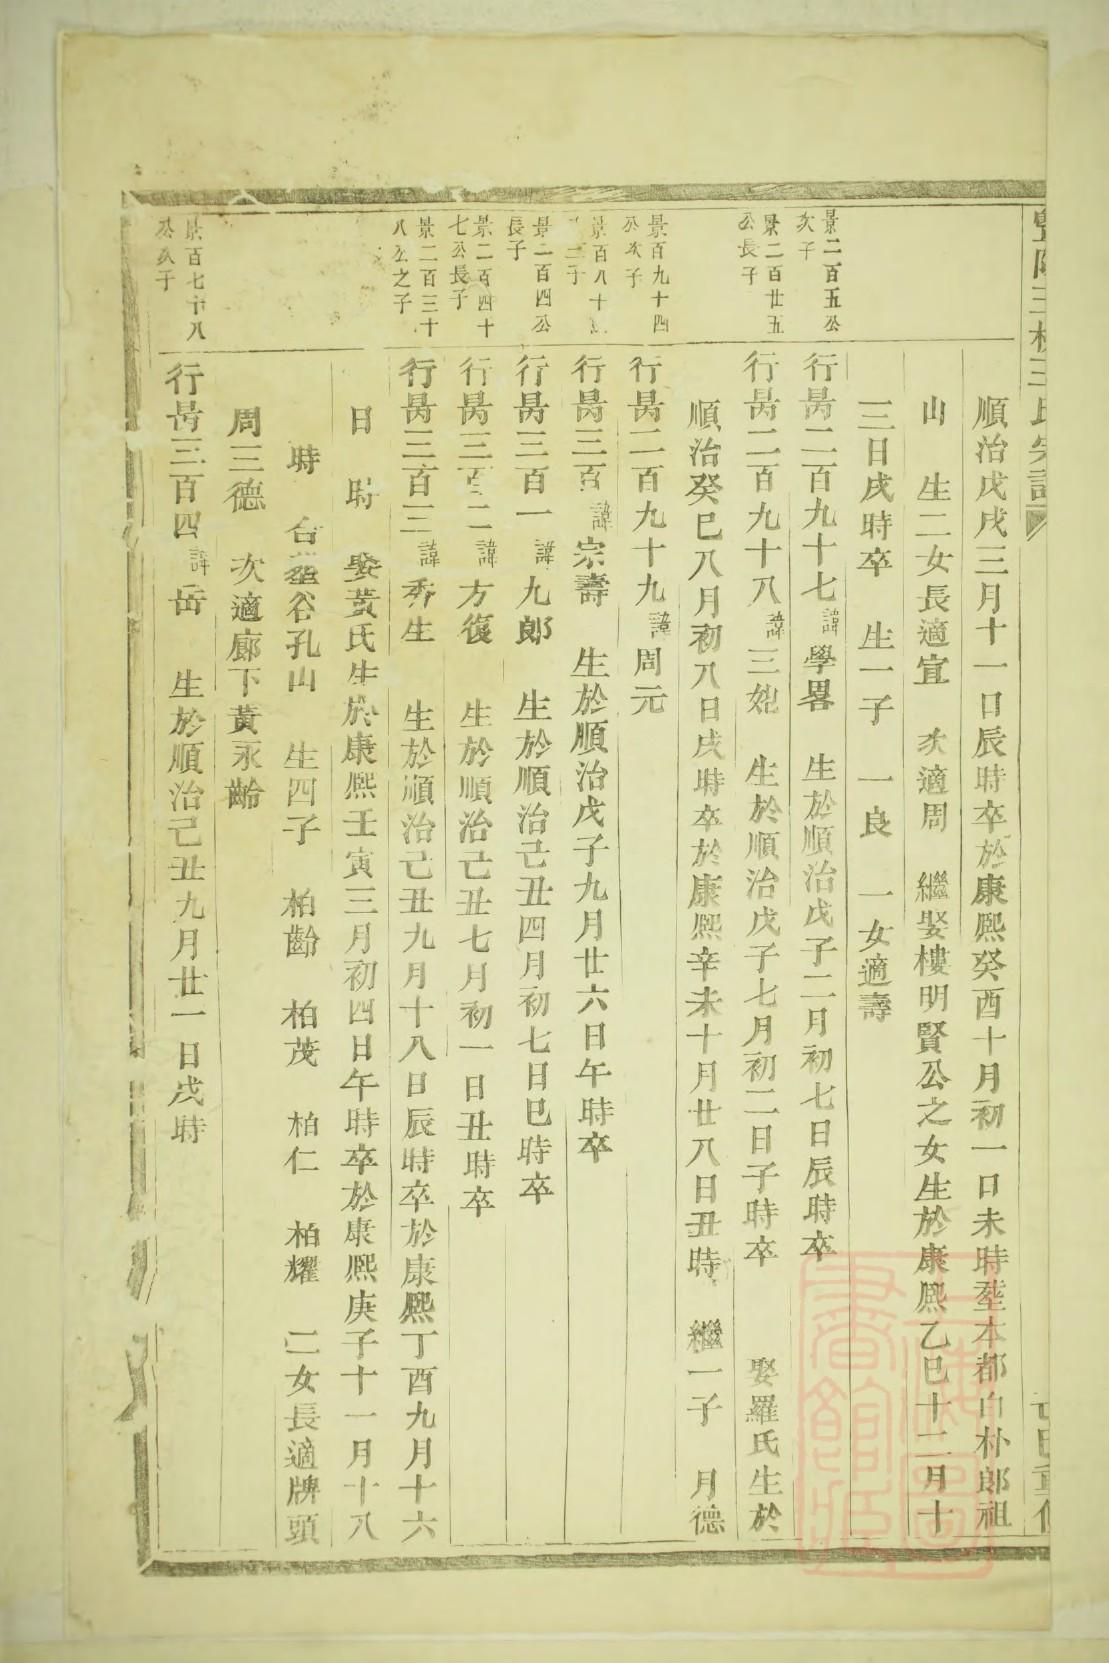 順治戊戌三月十一日辰時卒於康熙癸酉十月初一日未時塟本都白朴郎祖
山 生二女長適宜 次適周 繼娶樓明賢公之女生於康熙乙巳十二月十
三日戌時卒 生一子 一良 一女適壽
景二百五公
次子
行昺二百九十七諱學畧 生於順治戊子二月初七日辰時卒
景二百廿五
公長子
行昺二百九十八諱三 生於順治戊子七月初二日子時卒 娶羅氏生於
順治癸巳八月初八日戌時卒於康熙辛未十月廿八日丑時 繼一子 月德
景百九十四
公次子
行昺二百九十九諱周元
景百八十
行昺三百諱宗壽 生於順治戊子九月廿六日午時卒
景二百四公
長子
行昺三百一諱九郎 生於順治己丑四月初七日巳時卒
景二百四十
七公長子
行昺三百二諱方復 生於順治己丑七月初一日丑時卒
景二百三十
八公之子
行昺三百三諱秀生 生於順治己丑九月十八日辰時卒於康熙丁酉九月十六
日 時 娶黃氏生於康熙壬寅三月初四日午時卒於康熙庚子十一月十八
時 合塟谷孔山 生四子 柏齡 柏茂 柏仁 柏耀 二女長適牌頭
周三德 次適廊下黃永齡
景百七十八
公次子
行昺三百四諱岳 生於順治己丑九月廿一日戌時